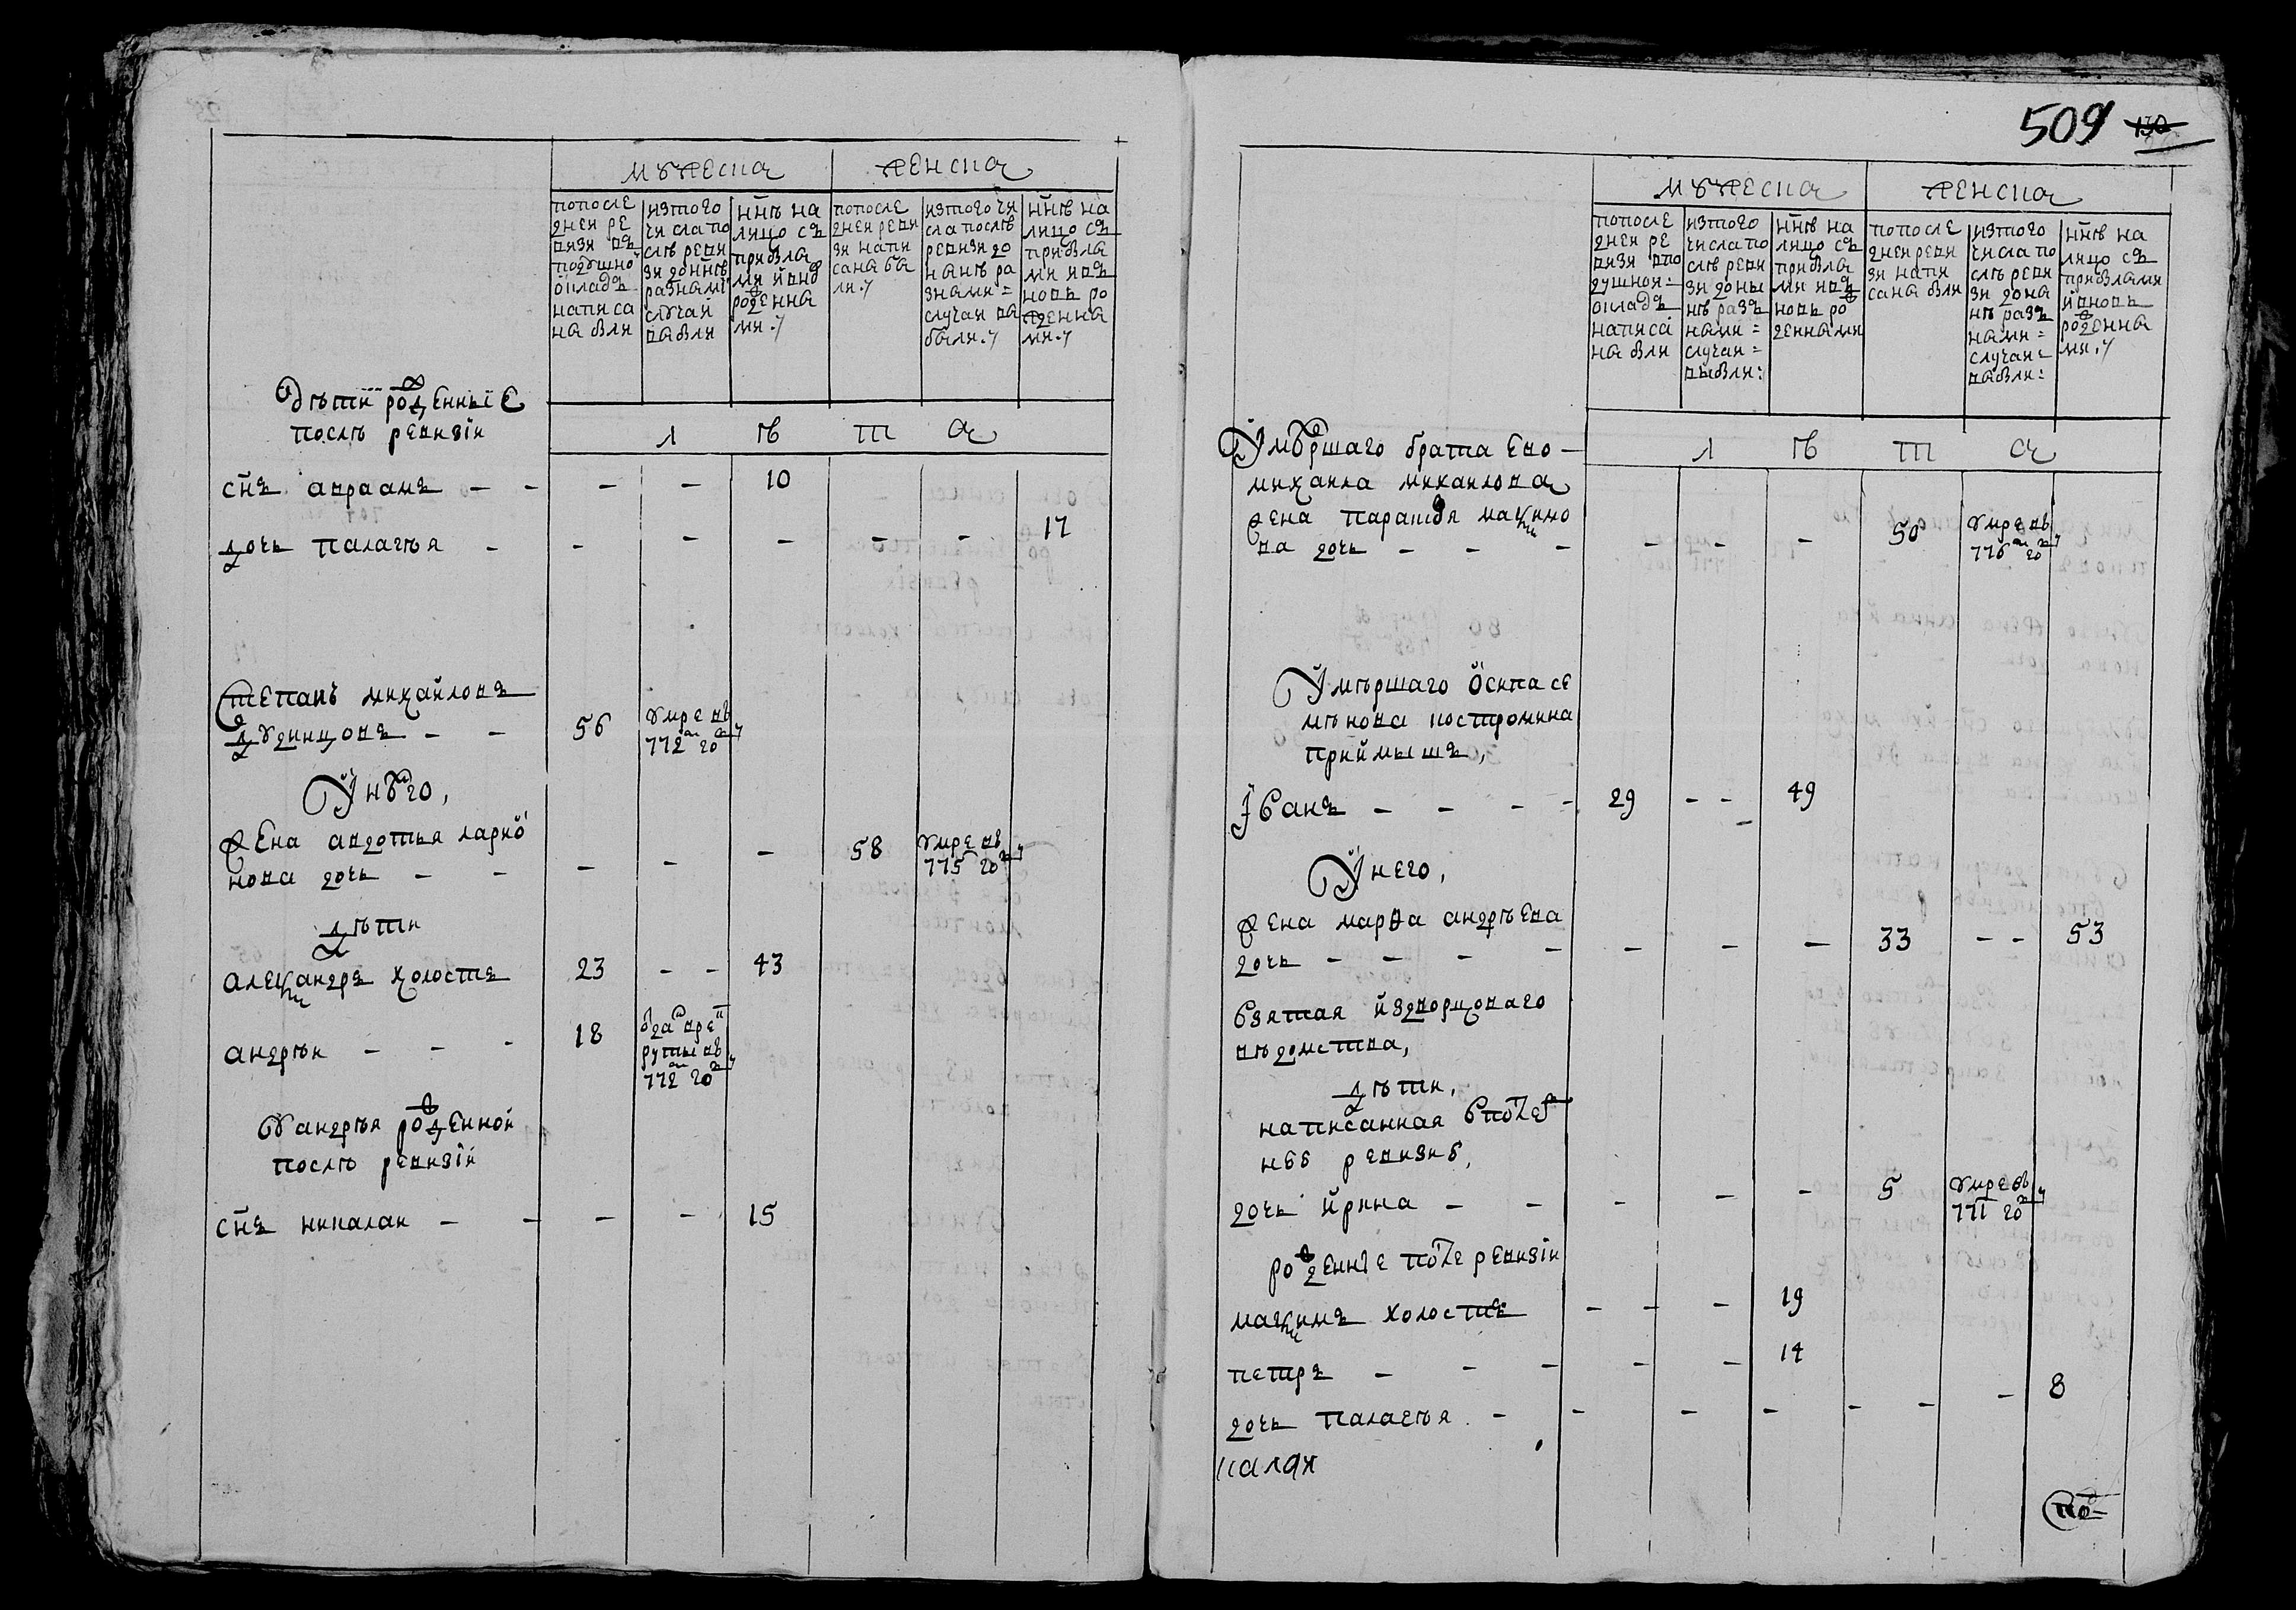 мужеска
женска
попосле
дней ре
визи въ
подушно
окладъ
написа
на были
изтого
числа по
слѣ реви
зи донынѣ
разными
случаи
выбыли
ннѣ на
лицо съ
прибылы
ми и вно
рожденны
ми
попосле
дней реви
зи напи
сана бы
ли
изтого чи
сла послѣ
ревизи до
нынѣ ра
зными
случаи вы
были
ннѣ на
лицо съ
прибылы
ми и въ
новь ро
жденны
ми
лѣта
дѣти рожденные
послѣ ревизіи
снъ авраамъ - - - - 10
дочь палагѣя - - - - - - 17
степанъ михайловъ
дудинцовъ - - 56 умре въ
772м году
У него,
жена авдотья ларио
нова дочь - - - - - 58 умре въ
775 году
дѣти
александръ холостъ 23 - - 43
андрѣи - - - 18 отдан в ре
круты въ
772м году
У андрѣя рожденной
послѣ ревизіи
снъ николаи - - - - 15
509 130
мужеска
женска
попосле
дней ре
визи впо
душной
окладъ
написа
на были
изтого
числа по
слѣ реви
зи доны
нѣ разъ
ными
случаи
выбыли
ннѣ на
лицо съ
прибылы
ми и въ
новь ро
жденными
попосле
дней реви
зи напи
сана были
изтого
числа по
слѣ реви
зи доны
нѣ разъ
ными
случаи
выбыли
ннѣ на
лицо съ
прибылыми
и вновь
рожденны
ми
лѣта
Умѣршаго брата ево
михаила михаилова
жена парасковья максимо
ва дочь - - - - - - 50 умре въ
776м году
Умѣршаго осипа се
мѣнова костромина
приймышъ,
Иванъ - - - - 29 - - 49
У него,
жена марѳа андрѣева
дочь - - - - - - - 33 - - 53
взятая издворцоваго
вѣдомства,
дѣти,
написанная в после
нѣй ревизиѣ,
дочь ирина - - - - - 5 умре въ
771 году
рожденные после ревизіи
максимъ холостъ - - - 19
петръ - - - - - 14
дочь палагѣя - - - - - - - 8
калая
по